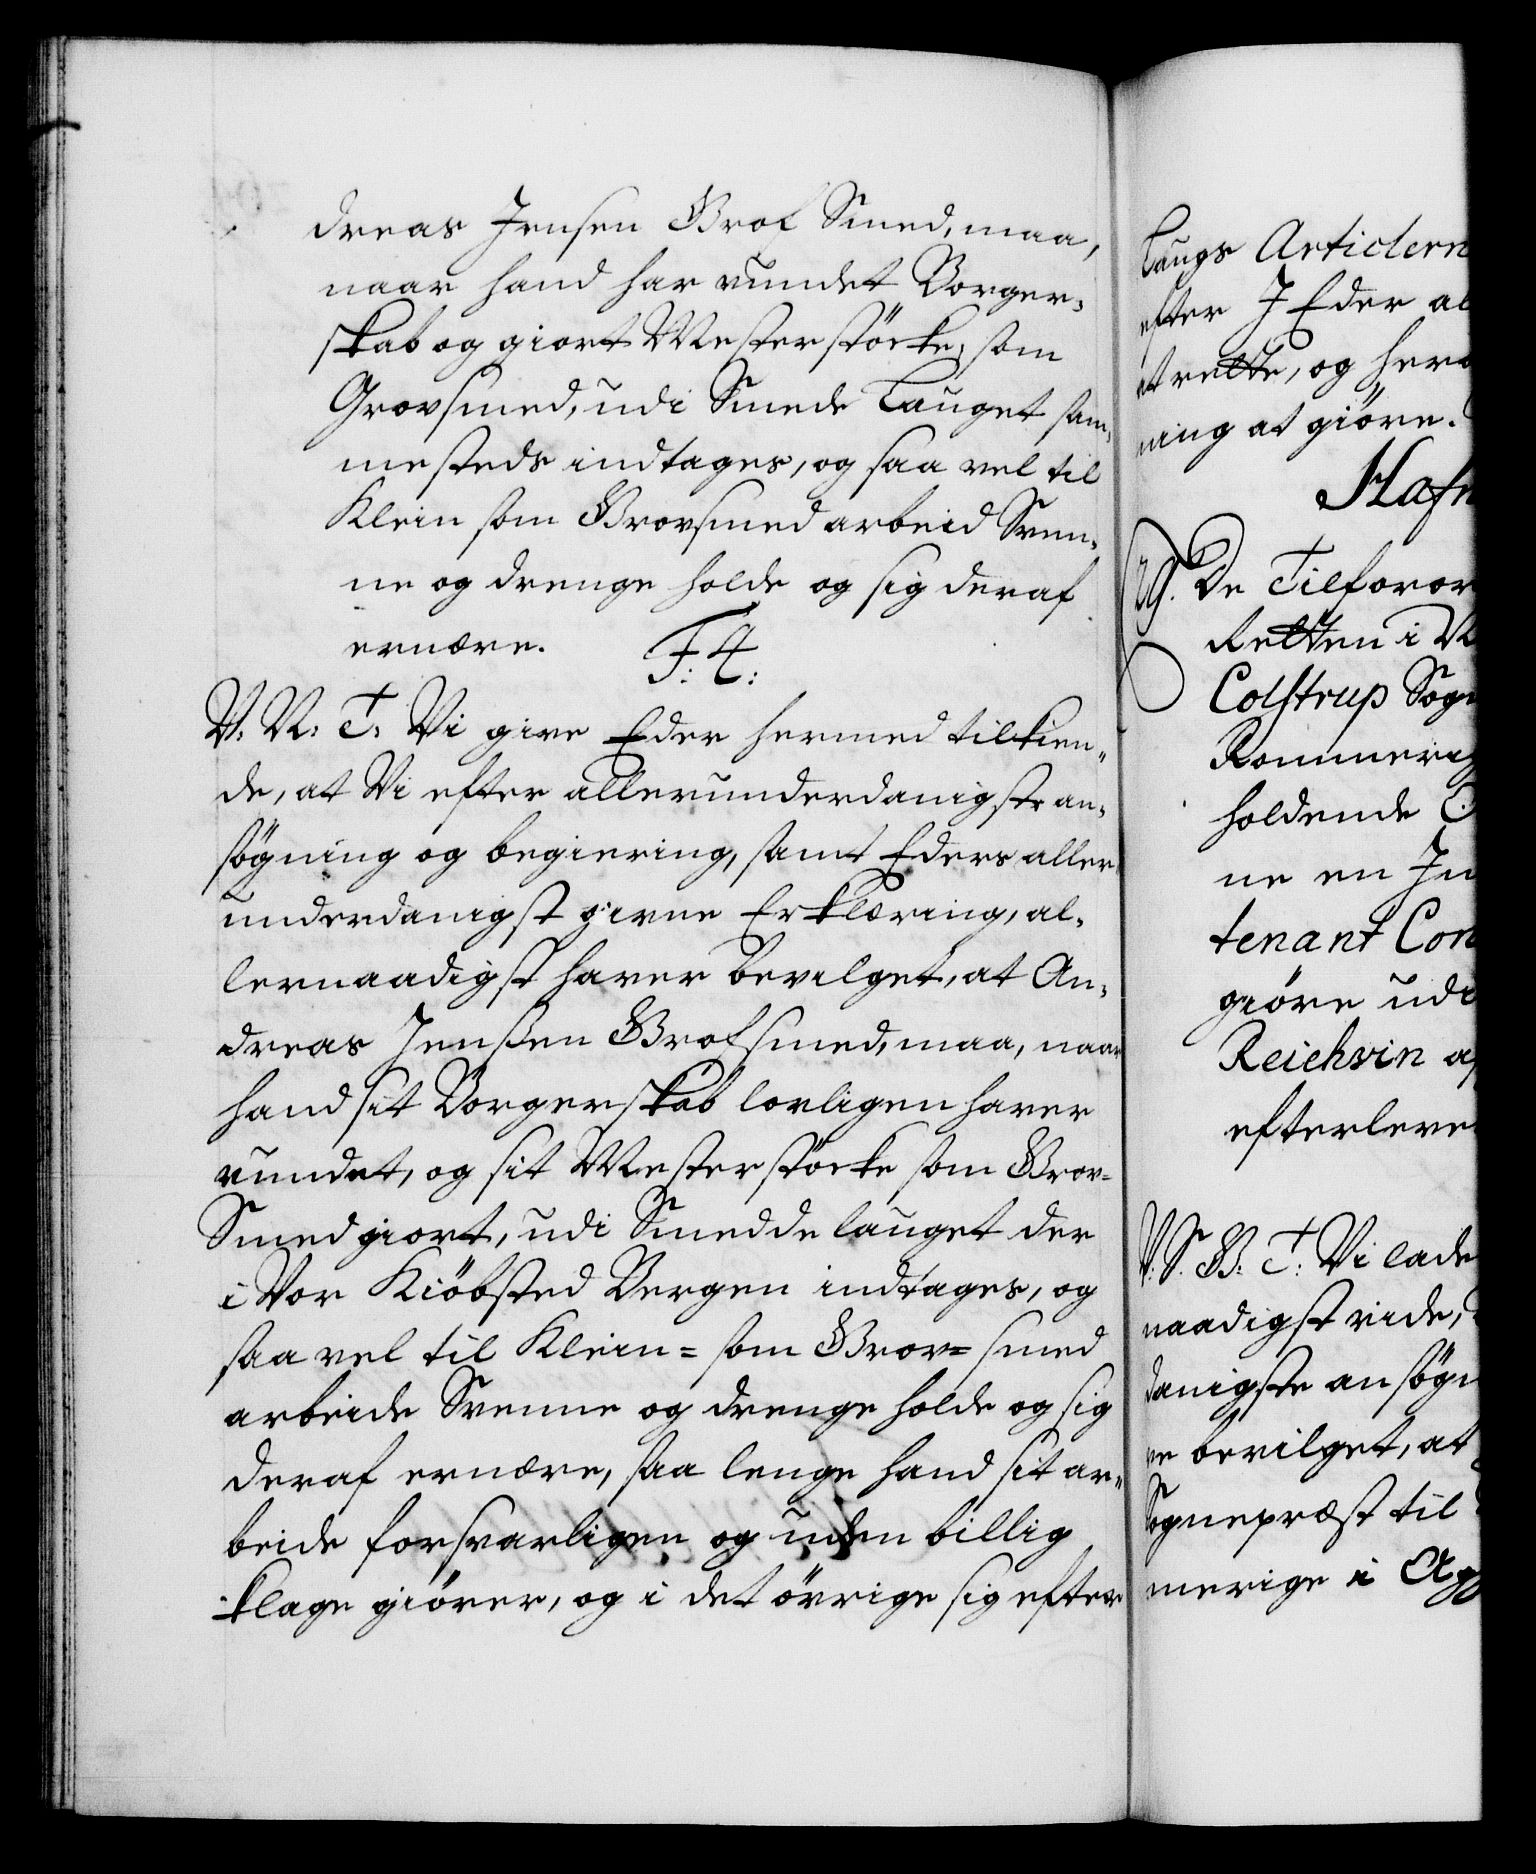 dreas Jensen Grof Smed, maa,
naar hand har vundet Borger-
skab og giort Mesterstöcke, som
Grovsmed, udi Smede Lauget sam-
mesteds indtages, og saa vel til
Klein som Grovsmed arbeid Sven-
ne og drenge holde og sig deraf
ernære. F: 4:
V. N: T: Vi give Eder hermed tilkien-
de, at Vi efter allerunderdanigste an-
søgning og begiering, samt Eders aller
underdanigst givne Erklæring, al-
lernaadigst haver bevilget, at An-
dreas Jenssen Grofsmed, maa, naar
hand sit Borgerskab lovligen haver
vundet, og sit Mesterstöcke som Grov=
Smed giort, udi Smedde lauget der
i Vor Kiöbsted Bergen indtages, og
saa vel til Klein= som Grov= smed
arbeide Svenne og drenge holde og sig
deraf ernære, saa lenge hand sit ar-
beide forsvarligen og uden billig
klage giörer, og i det övrige sig efter
Laugs Articlern
efter J Eder al
at rette, og her
ning at giöre.
Hafn
De Tilforor
Retten i
Colstrup Sogn
Rommerig
holdende
ne en In
tenant Con
giöre udi
Reichvin af
efterleve
V. S. B: T: Vi lade
naadigst vide,
danigste ansögn
ve bevilget, at
Sognepræst til
merige i Ag